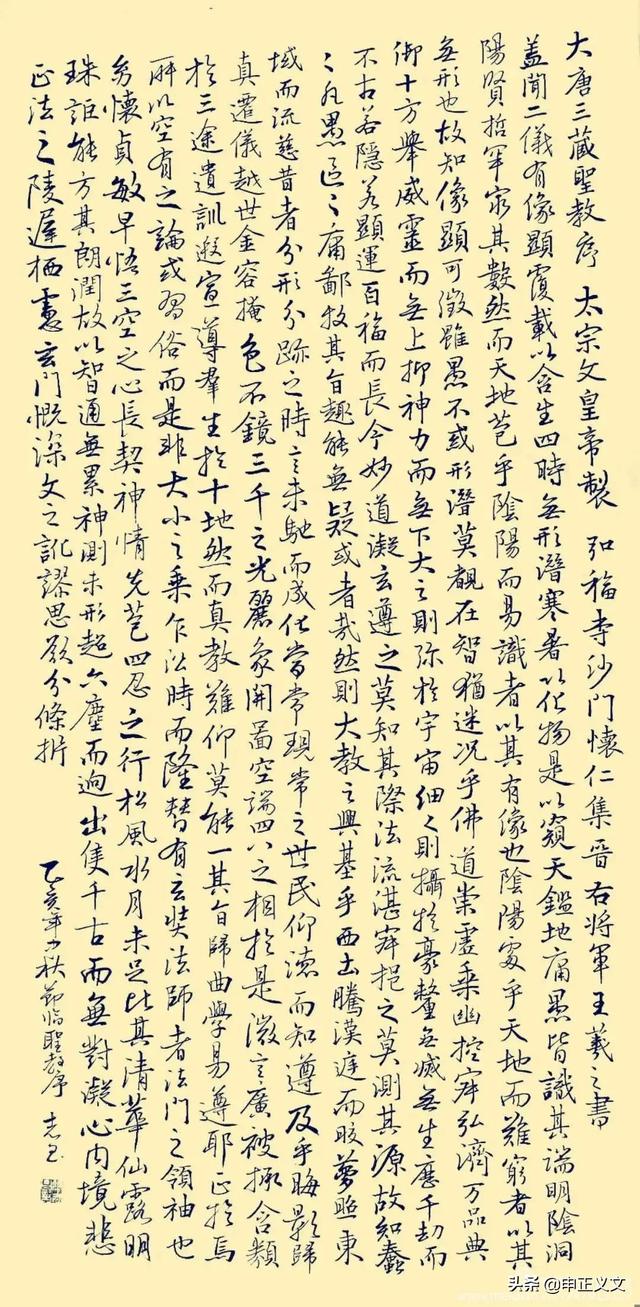 大唐三藏聖教序 太宗文皇帝製 弘福寺沙門懷仁集晉右將軍王羲之書
蓋聞二儀有像顯覆載以含生四時無形潛寒暑以化物是以窺天鑑地庸愚皆識其端明陰洞
陽賢哲罕窮其數然而天地苞乎陰陽而易識者以其有像也陰陽處乎天地而難窮者以其
無形也故知像顯可徵雖愚不惑形潛莫覩在智猶迷況乎佛道崇虛乘幽控寂弘濟万品典
御十方舉威靈而無上抑神力而無下大之則弥於宇宙細之則攝於豪釐無滅無生歷千劫而
不古若隱若顯運百福而長今妙道凝玄遵之莫知其際法流湛寂挹之莫測其源故知蠢
々凡愚區々庸鄙投其旨趣能無疑或者哉然則大教之興基乎西土騰漢庭而皎夢照東
域而流慈昔者分形分跡之時言未馳而成化當常現常之世民仰德而知遵及乎晦影歸
真遷儀越世金容掩色不鏡三千之光麗象開圖空端四八之相於是微言廣被拯含類
於三途遺訓遐宣導羣生於十地然而真教難仰莫能一其旨歸曲學易遵耶正於焉
所以空有之論或習俗而是非大小之乘乍沿時而隆替有玄奘法師者法門之領袖也
幼懷貞敏早悟三空之心長契神情先苞四忍之行松風水月未足比其清華仙露明
珠詎能方其朗潤故以智通無累神測未形超六塵而迥出隻千古而無對凝心內境悲
正法之陵遲栖慮玄門慨深文之訛謬思欲分條析
乙亥年秋節臨聖教序 志
头条 @申正义文